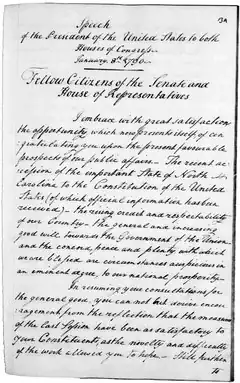 Speech
of the President of the United States to both
Houses of Congress
January. 8th 1790.
Fellow Citizens of the Senate and
House of Representatives
I embrace with great satisfaction
the opportunity which now presents itself, of con
gratulating you upon the present favourable
prospects of our public affairs— The recent ac
cession of the important State of North
Carolina to the Constitution of the United
States (of which official information has been
received)— the rising credit and respectability
of our Country— the general and increasing
good will towards the Government of the Union
and the concord, peace and plenty with which
we are blessed are circumstances auspicious in
an eminent degree, to our national prosperity—
In resuming your consultations for
the general good, you can not but derive encou
ragement from the reflection that the measures
of the last Session have been as satisfactory to
your Constituents, as the novelty and difficulty
of the work allowed you to hope— Still further
to